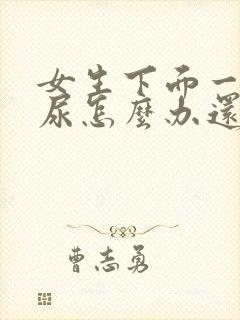 女生下面一
尿怎麼办還
曹志勇